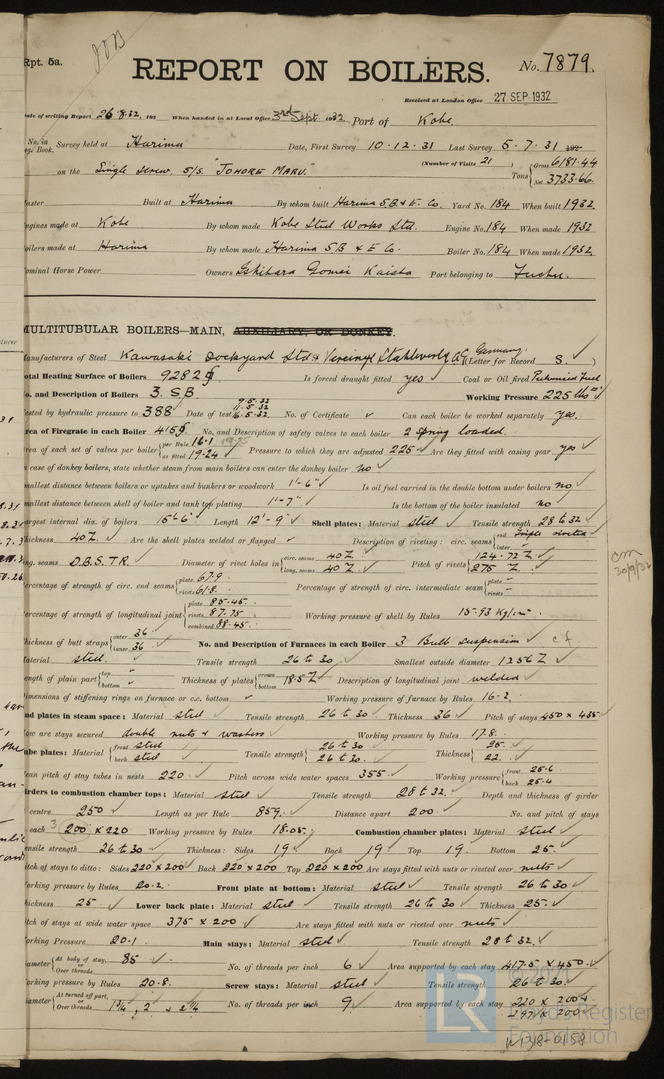 Rpt. 5a.
REPORT ON BOILERS.
No. 7879.
Received at London Office 27 SEP. 1932
Date of writing Report 26.8.32. 193 When handed in at Local Office 3rd Sept. 1932 Port of Kobe
No. in Survey held at Harima Date, First Survey 10.12.31 Last Survey 5.7.31
Reg. Book. (Number of Visits 21)
on the Single Screw S/S. "JOHORE MARU." Tons { Gross 6181.44
Net 3733.66
Master Built at Harima By whom built Harima S.B. & E. Co. Yard No. 184 When built 1932
Engines made at Kobe By whom made Kobe Steel Works Ltd. Engine No. 184 When made 1932
Boilers made at Harima By whom made Harima S.B. & E. Co. Boiler No. 184 When made 1932
Nominal Horse Power Owners Ishihara Gomei Kaisha Port belonging to Fuchu.
MULTITUBULAR BOILERS—MAIN, AUXILIARY OR DONKEY.
Manufacturers of Steel Kawasaki Dockyard Ltd & A.G. Germany (Letter for Record S. )
Total Heating Surface of Boilers 9282 Is forced draught fitted yes Coal or Oil fired
No. and Description of Boilers 3. S.B Working Pressure 225 lbs
Tested by hydraulic pressure to 388 Date of test 9.5.32 11.5.32 6.5.32 No. of Certificate Can each boiler be worked separately yes.
Area of Firegrate in each Boiler No. and Description of safety valves to each boiler 2 Spring loaded.
Area of each set of valves per boiler { per Rule 16.1
as fitted 19.24 Pressure to which they are adjusted 225 Are they fitted with easing gear yes
In case of donkey boilers, state whether steam from main boilers can enter the donkey boiler no
Smallest distance between boilers or uptakes and bunkers or woodwork 1'-6" Is oil fuel carried in the double bottom under boilers no
Smallest distance between shell of boiler and tank top plating 1'-7" Is the bottom of the boiler insulated no
Largest internal dia. of boilers 15'-6" Length 12'-9" Shell plates: Material steel Tensile strength 28 to 32
Thickness 40 Are the shell plates welded or flanged Description of riveting: circ. seams { end Triple riveted
inter
long. seams D.B.S.T.R. Diameter of rivet holes in { circ. seams 40
long. seams 40 Pitch of rivets { 124.72
275
Percentage of strength of circ. end seams { plate 67.9
rivets 61.8 Percentage of strength of circ. intermediate seam { plate
rivets
Percentage of strength of longitudinal joint { plate 85.45
rivets 87.75
combined 88.45 Working pressure of shell by Rules 15.93 Kg/cm
Thickness of butt straps { outer 36
inner 36 No. and Description of Furnaces in each Boiler 3 Bulb suspension
Material steel Tensile strength 26 to 30 Smallest outside diameter 1256
Length of plain part { top
bottom Thickness of plates { crown
bottom 18.5 Description of longitudinal joint welded
Dimensions of stiffening rings on furnace or c.c. bottom Working pressure of furnace by Rules 16.2
End plates in steam space: Material steel Tensile strength 26 to 30 Thickness 36 Pitch of stays 450 x 435
How are stays secured double nuts & washers Working pressure by Rules 17.8
Tube plates: Material { front steel
back steel Tensile strength { 26 to 30
26 to 30 Thickness { 25
22
Mean pitch of stay tubes in nests 220 Pitch across wide water spaces 355 Working pressure { front 25.6
back 25.4
Girders to combustion chamber tops: Material steel Tensile strength 28 to 32 Depth and thickness of girder
at centre 250 Length as per Rule 859 Distance apart 200 No. and pitch of stays
in each 3 200 x 220 Working pressure by Rules 18.05 Combustion chamber plates: Material steel
Tensile strength 26 to 30 Thickness: Sides 19 Back 19 Top 19 Bottom 25
Pitch of stays to ditto: Sides 220 x 200 Back 220 x 200 Top 220 x 200 Are stays fitted with nuts or riveted over nuts
Working pressure by Rules 20.2 Front plate at bottom: Material steel Tensile strength 26 to 30
Thickness 25 Lower back plate: Material steel Tensile strength 26 to 30 Thickness 25
Pitch of stays at wide water space 375 x 200 Are stays fitted with nuts or riveted over nuts
Working Pressure 20.1 Main stays: Material steel Tensile strength 28 to 32
Diameter { At body of stay, 85
or
Over threads No. of threads per inch 6 Area supported by each stay 417.5 x 450
Working pressure by Rules 20.8 Screw stays: Material steel Tensile strength 26 to 30
Diameter { At turned off part,
or
Over threads 1 3/4, 2 & 2 1/4 No. of threads per inch 9 Area supported by each stay 220 x 200
297 x 200
© 2021
LR
Lloyd's Register
Foundation
W1318-0158